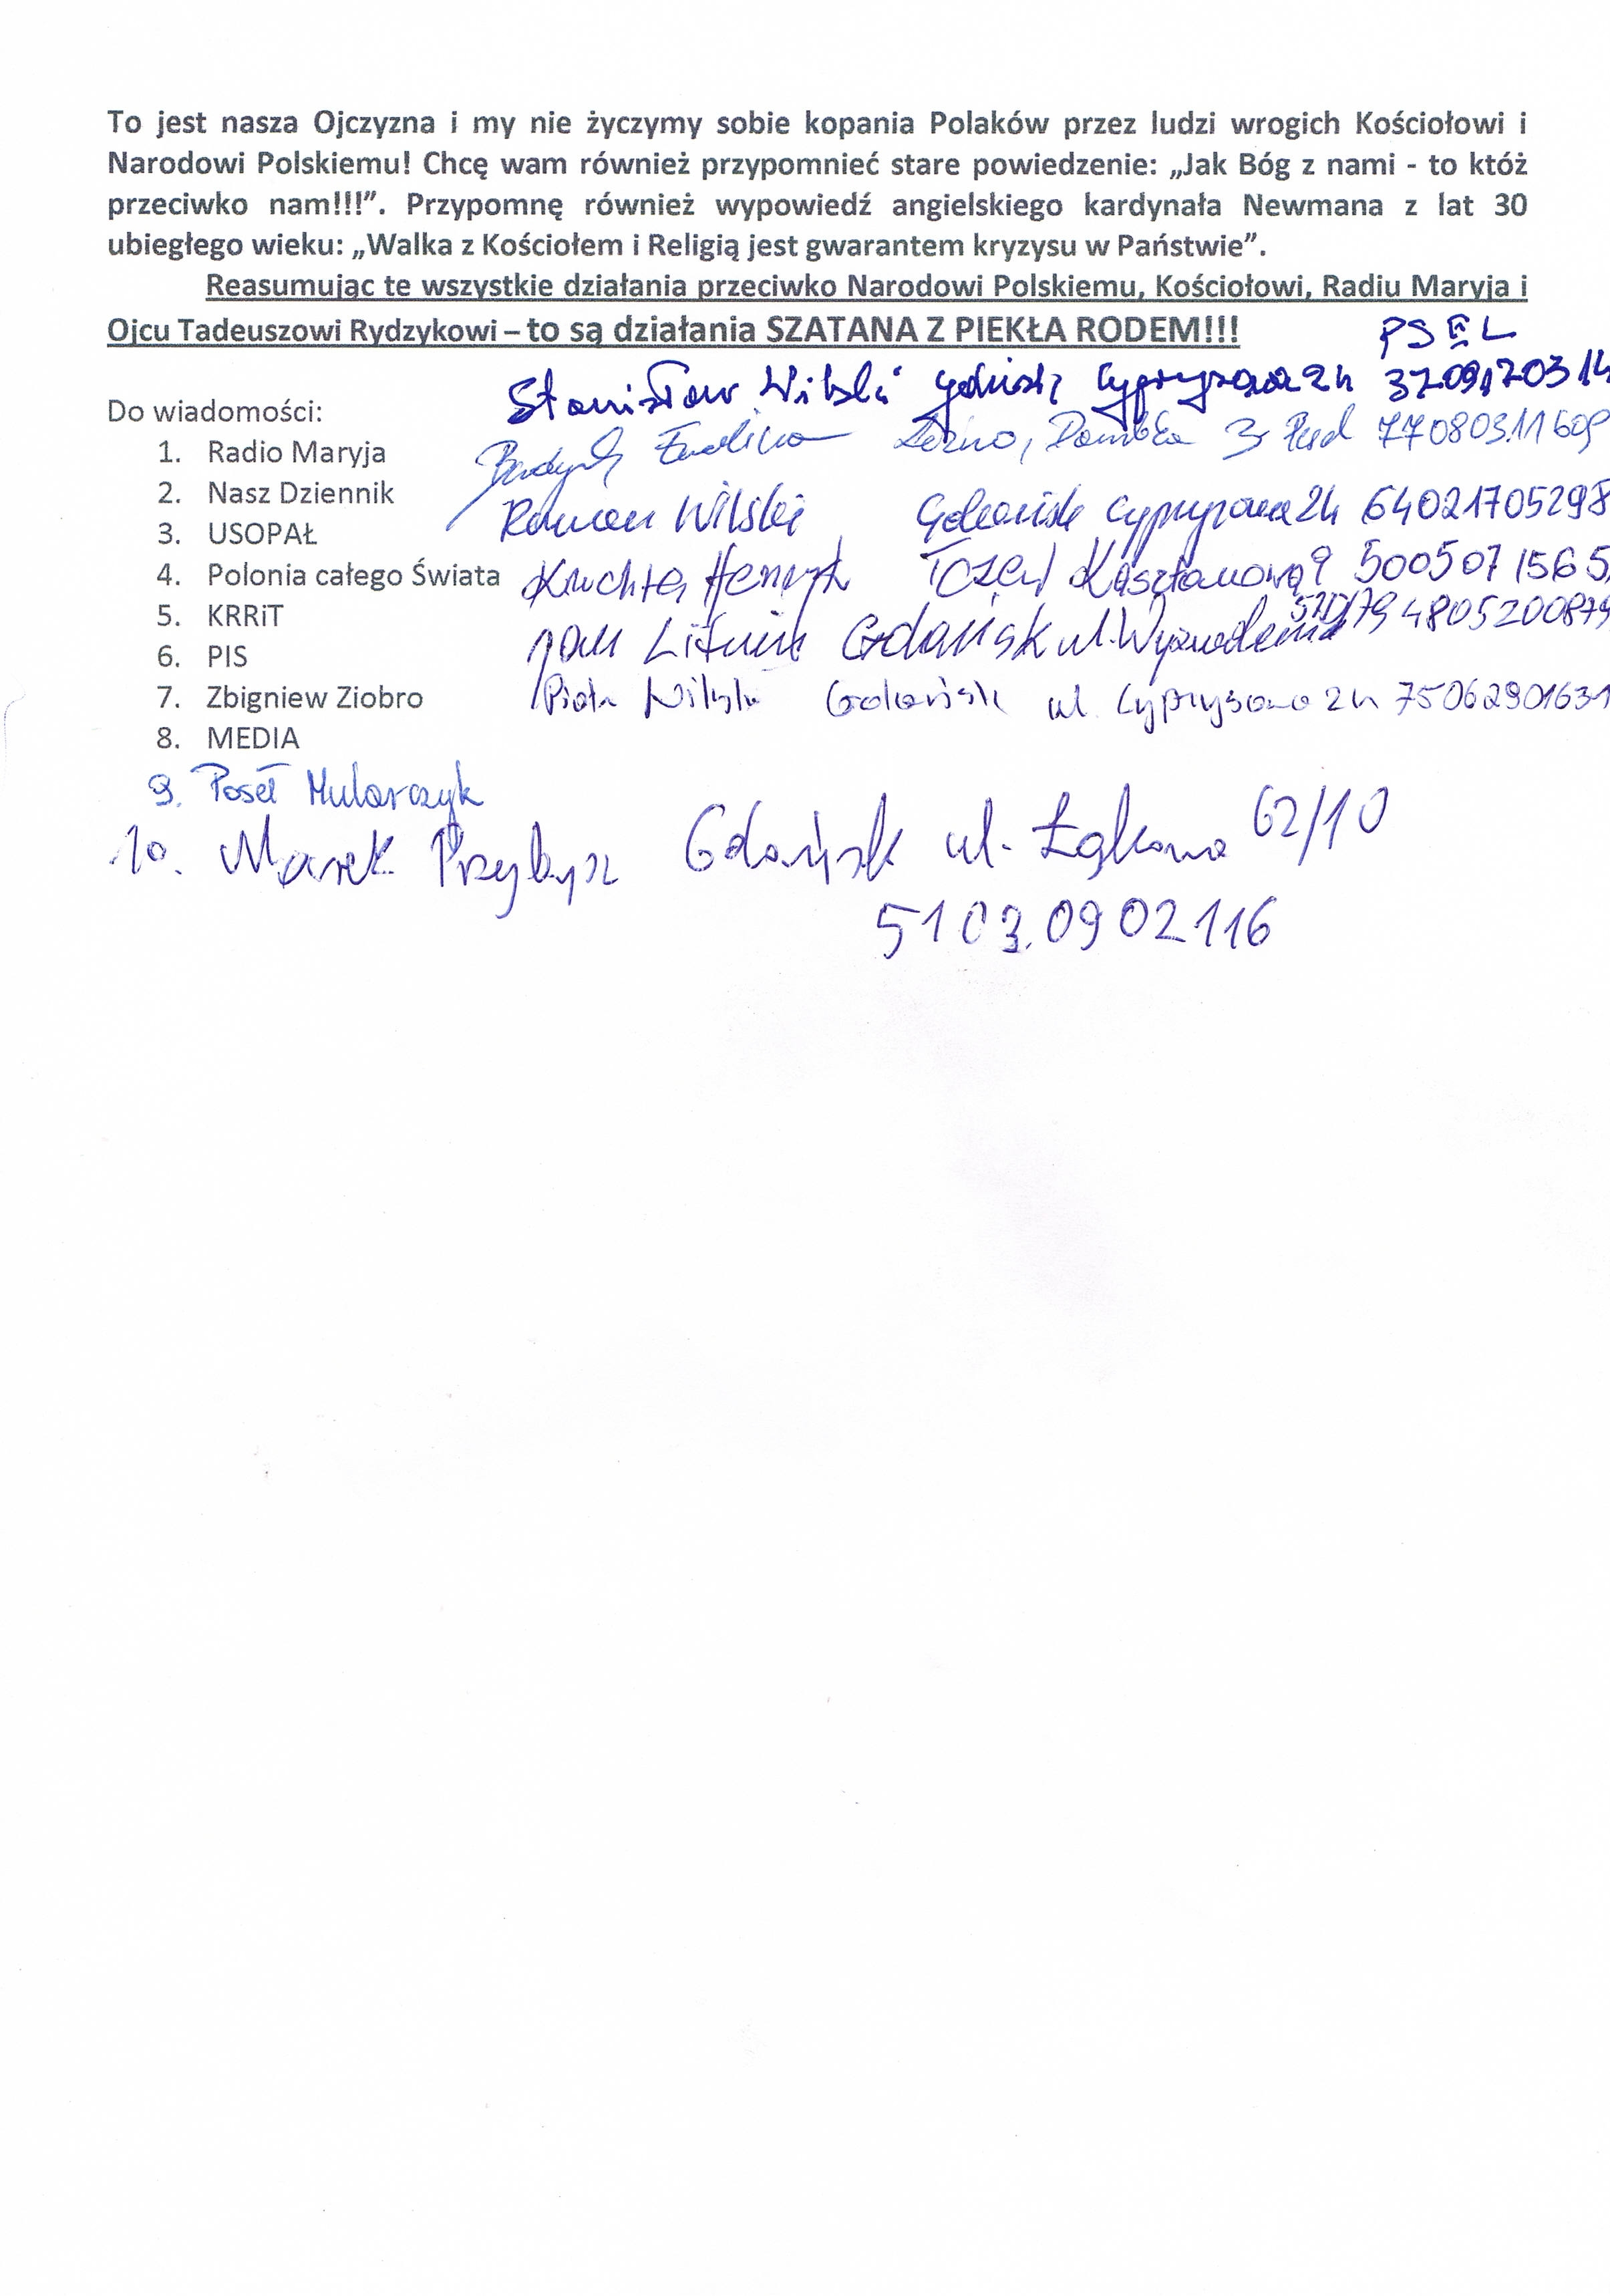 To jest nasza Ojczyzna i my nie życzymy sobie kopania Polaków przez ludzi wrogich Kościołowi i
Narodowi Polskiemu! Chcę wam również przypomnieć stare powiedzenie: „Jak Bóg z nami - to któż
przeciwko nam!!!”. Przypomnę również wypowiedź angielskiego kardynała Newmana z lat 30
ubiegłego wieku: „Walka z Kościołem i Religią jest gwarantem kryzysu w Państwie”.
Reasumując te wszystkie działania przeciwko Narodowi Polskiemu, Kościołowi, Radiu Maryja i
Ojcu Tadeuszowi Rydzykowi – to są działania SZATANA Z PIEKŁA RODEM!!!
PSEL
Stanisław Wilski Gdańsk Cyprysowa 2h
Do wiadomości:
1. Radio Maryja
2. Nasz Dziennik
3. USOPAŁ
4. Polonia całego Świata
5. KRRiT
6. PIS
7. Zbigniew Ziobro
8. MEDIA
Ewelina 3 77080311609
Roman Wilski Gdańsk Cyprysowa 2h 64021705298
Kuchta Henryk Tczew Kasztanowa 9 5005071565
Jan Gdańsk ul. Wyzwolenia 4805200879
Piotr Wilski Gdańsk ul. Cyprysowa 2h 75062901631
9. Poseł Mularczyk
10. Marek Przybysz Gdańsk ul. Łąkowa 62/10
5103.0902116